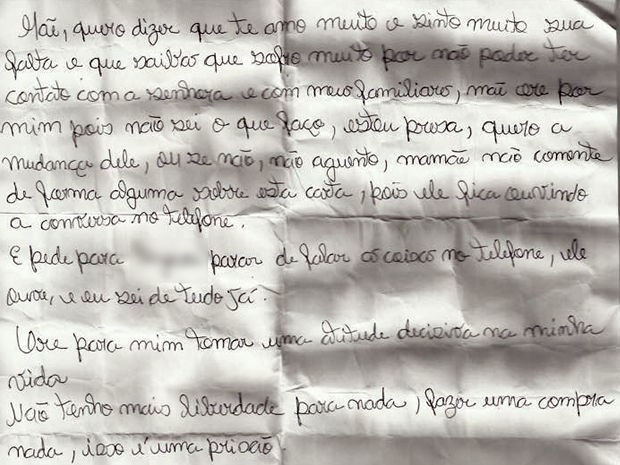 Mãi, quero dizer que te amo muito e sinto muito sua
falta e que saibas que sofro muito por não poder ter
contato com a senhora e com meus familiares, mãi ore por
mim pois não sei o que faço, estou presa, quero a
mudança dele, ou se não, não aguento, mamãe não comente
de forma alguma sobre esta carta, pois ele fica ouvindo
a conversa no telefone.
E pede para parar de falar as coisas no telefone, ele
ouve, e eu sei de tudo já.
Ore para mim tomar uma atitude decisiva na minha
vida
Não tenho mais liberdade para nada, fazer uma compra
nada, isso é uma prisão.